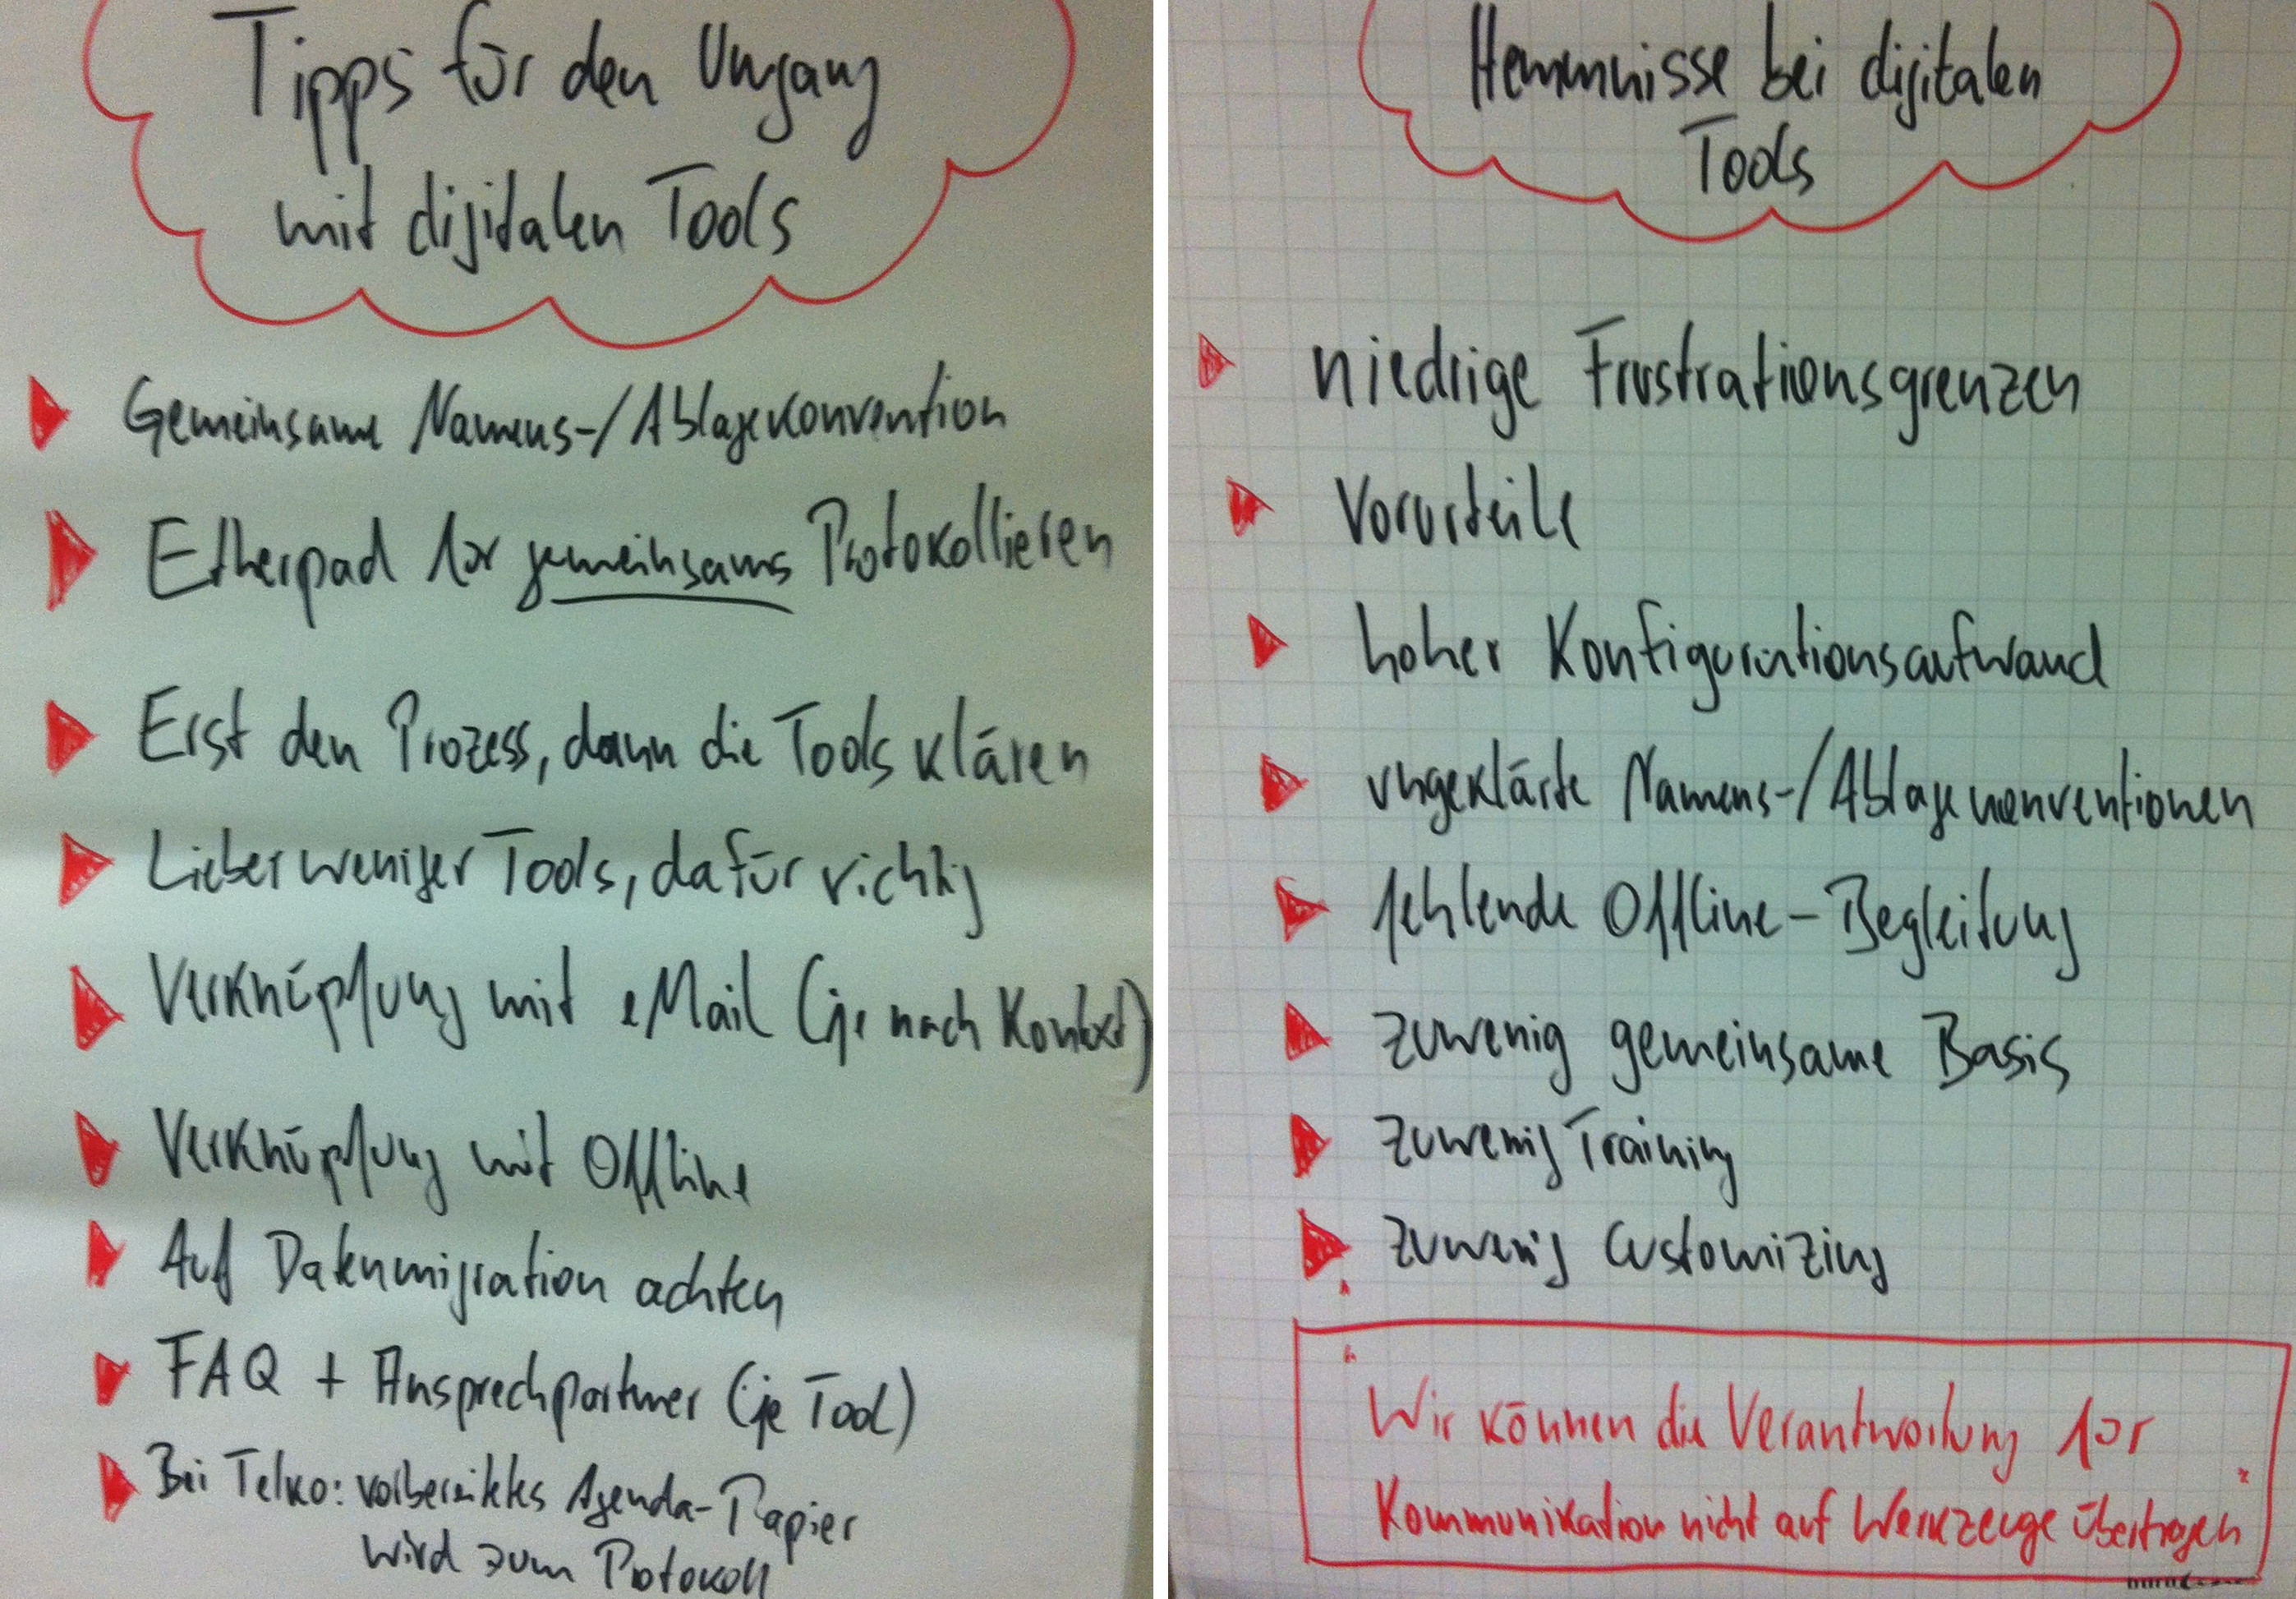 Tipps für den Umgang
mit digitalen Tools
Gemeinsame Namens-/Ablagekonvention
Etherpad für gemeinsames Protokollieren
Erst den Prozess, dann die Tools klären
Lieber weniger Tools, dafür richtig
Verknüpfung mit eMail (je nach Kontext)
Verknüpfung mit Offline
Auf Datenmigration achten
FAQ + Ansprechpartner (je Tool)
Bei Telko: vorbereitetes Agenda-Papier
wird zum Protokoll
Hemmnisse bei digitalen
Tools
niedrige Frustrationsgrenzen
Vorurteile
hoher Konfigurationsaufwand
ungeklärte Namens-/Ablagekonventionen
fehlende Offline-Begleitung
zuwenig gemeinsame Basis
zuwenig Training
zuwenig Customizing
Wir können die Verantwortung für
Kommunikation nicht auf Werkzeuge übertragen